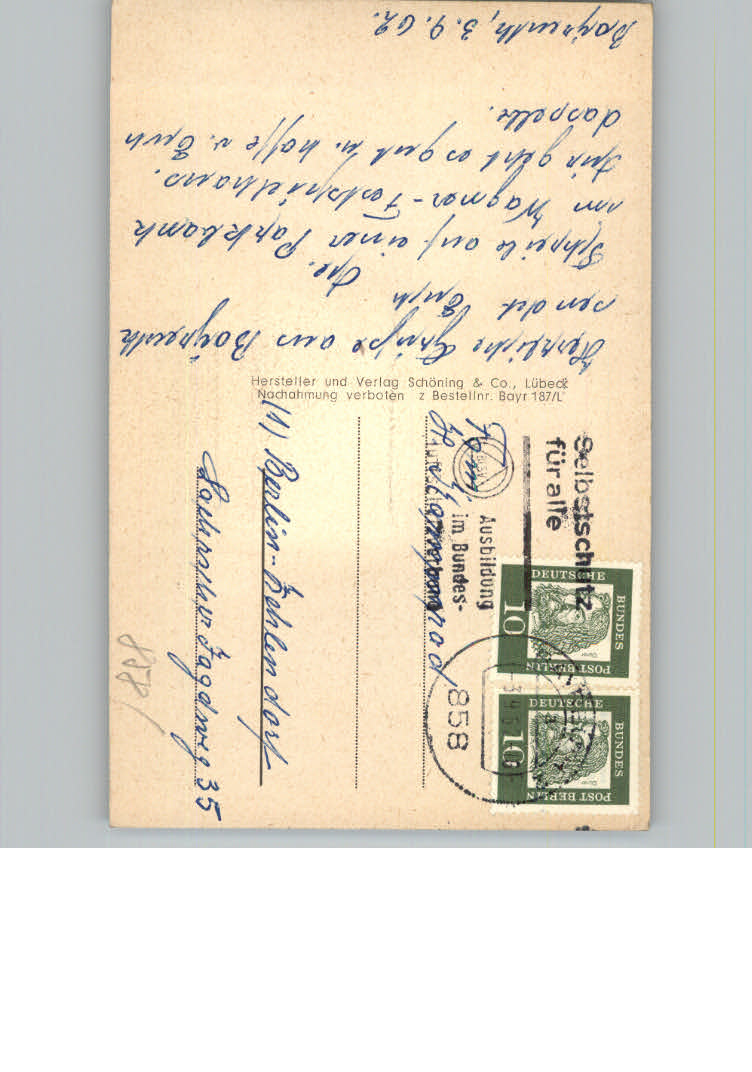 Bayreuth, 3.9.62.
Herzliche Grüße aus Bayreuth
sendet Euch
Ihr.
Schreibe auf einer Parkbank
am Wagner-Festspielhaus.
Mir geht es gut u. hoffe v. Euch
dasselbe.
Hersteller und Verlag Schöning & Co., Lübeck
Nachahmung verboten z Bestellnr. Bayr 187/L
Selbstschutz
für alle
Ausbildung
im Bundes-
luftschutzverband
858
DEUTSCHE
BUNDES
POST BERLIN
Dürer
10
DEUTSCHE
BUNDES
POST BERLIN
Dürer
10
Fam.
(1) Berlin-Zehlendorf
Jagdweg 35
858